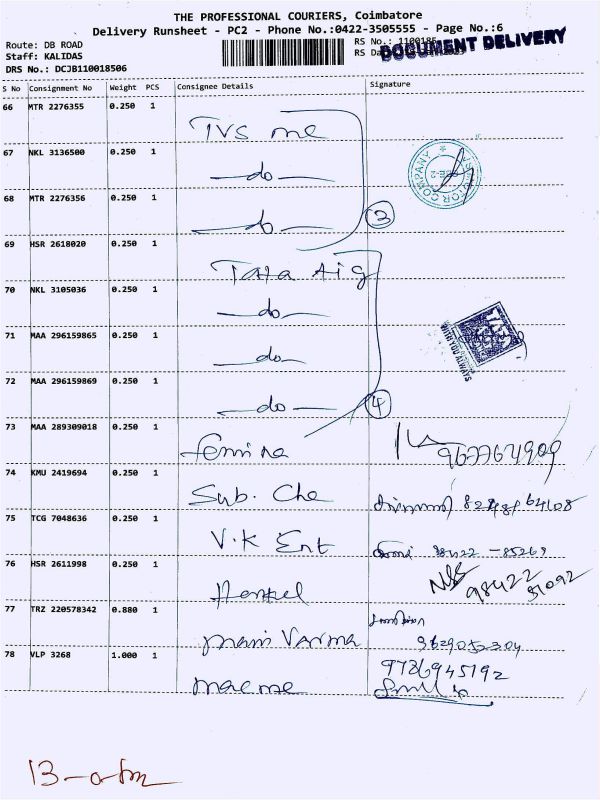 THE PROFESSIONAL COURIERS, Coimbatore
Delivery Runsheet - PC2 - Phone No.:0422-3505555 - Page No.:6
Route: DB ROAD
RS No.:
DOCUMENT DELIVERY
Staff: KALIDAS
DRS No.: DCJB110018506
S No Consignment No Weight PCS Consignee Details Signature
66 MTR 2276355 0.250 1 TVS me
67 NKL 3136500 0.250 1 -do-
MOTOR COMPANY
68 MTR 2276356 0.250 1 -do- 3
69 HSR 2618020 0.250 1 Tata Aig
70 NKL 3105036 0.250 1 -do-
71 MAA 296159865 0.250 1 -do-
TATA
WITH YOU ALWAYS
72 MAA 296159869 0.250 1 -do- 4
73 MAA 289309018 0.250 1 Femina
74 KMU 2419694 0.250 1 Sub. Che
75 TCG 7048636 0.250 1 V.K Ent
76 HSR 2611998 0.250 1 Henkel 98422
77 TRZ 220578342 0.880 1 mani Varma
9786945192
78 VLP 3268 1.000 1